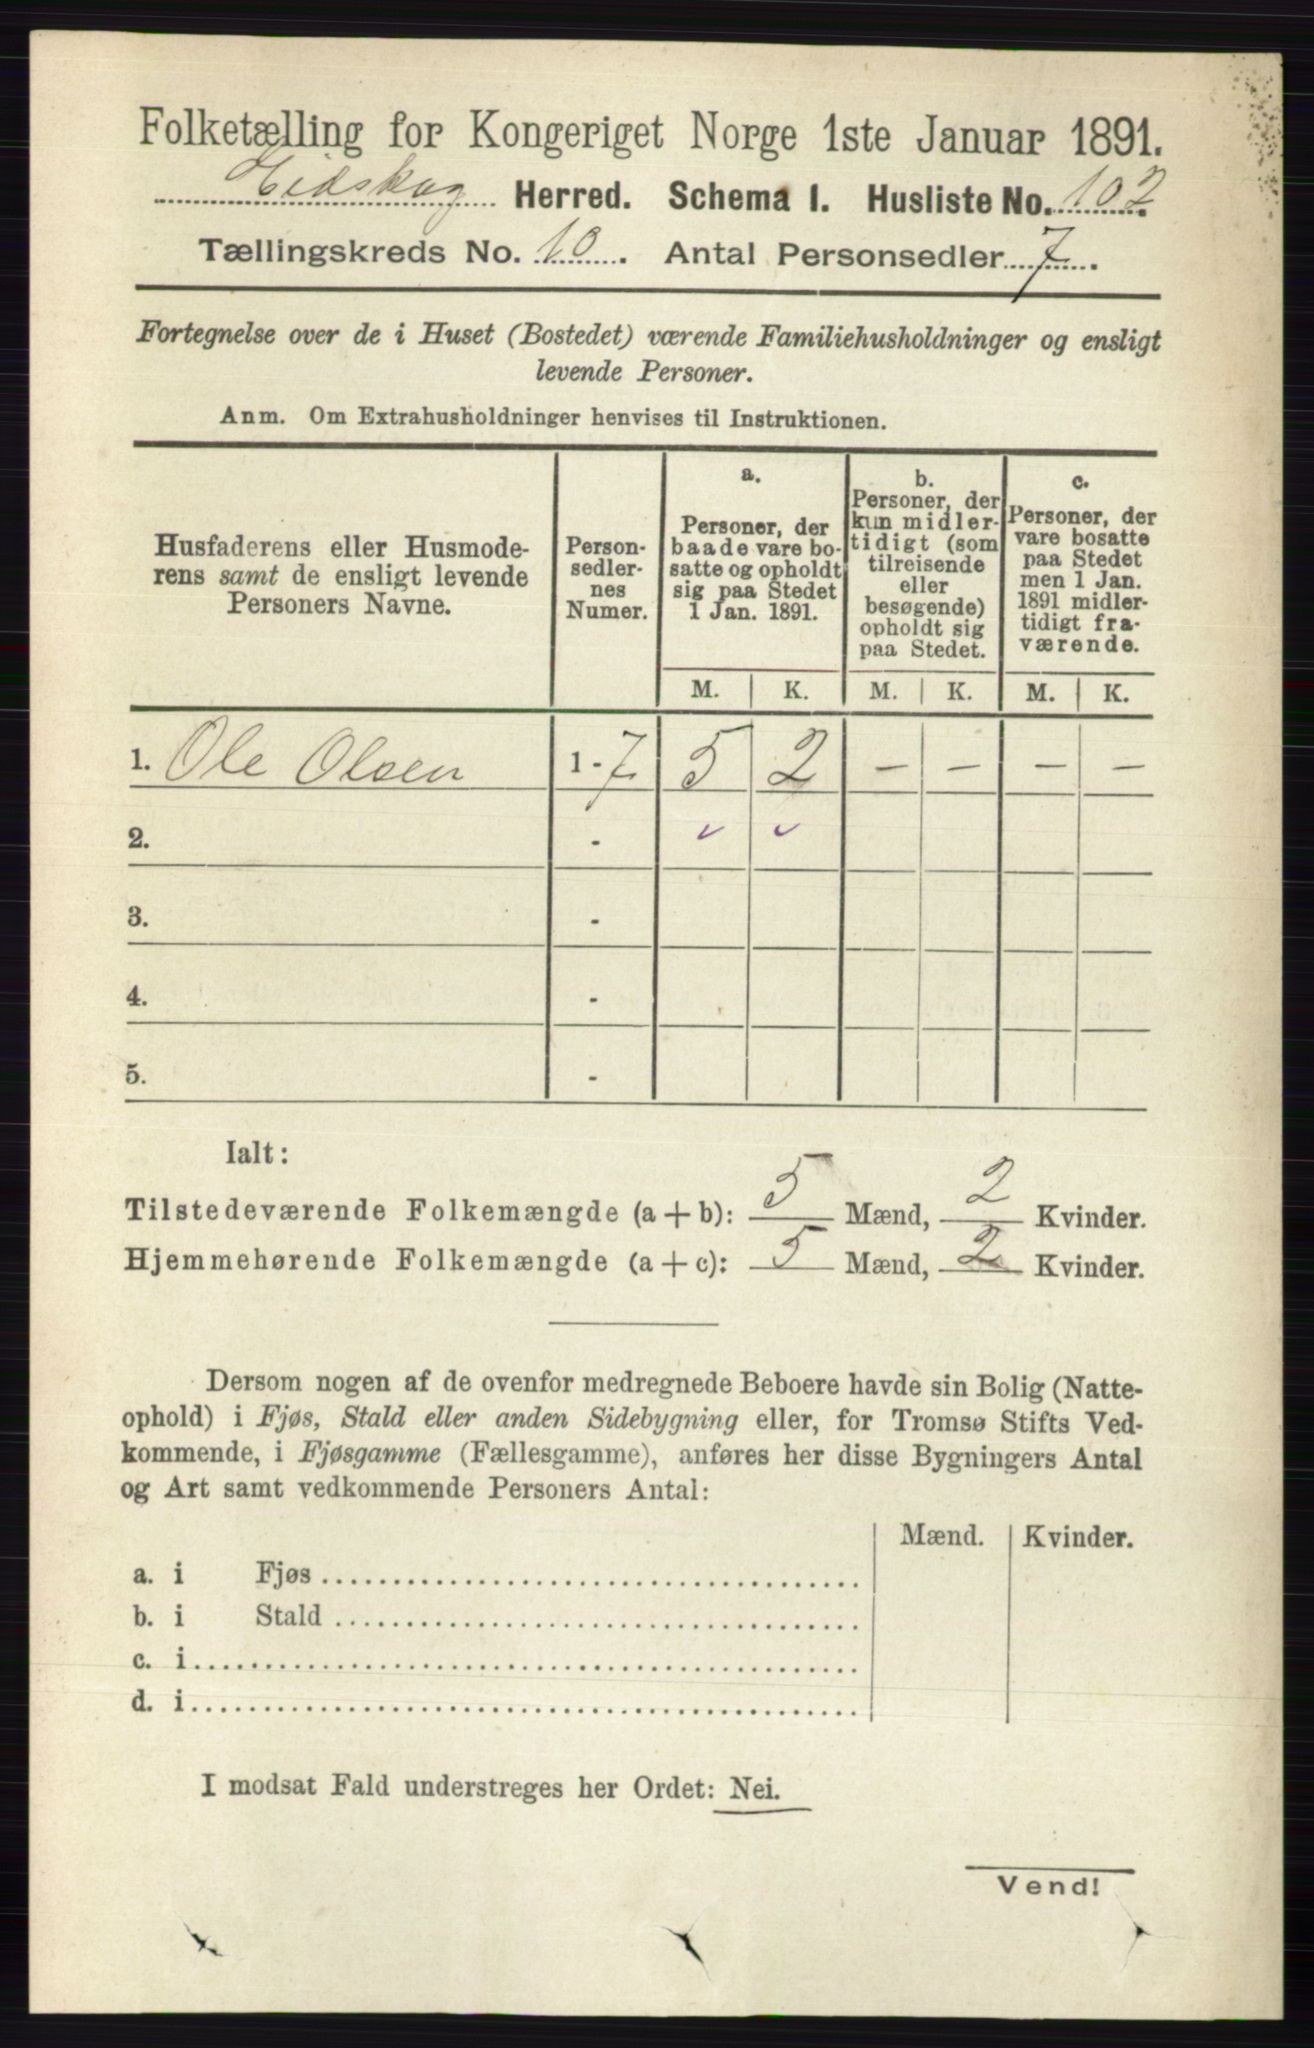 Folketælling for Kongeriget Norge 1ste Januar 1891.
Eidskog Herred. Schema I. Husliste No. 102.
Tællingskreds No. 10. Antal Personsedler 7.
Fortegnelse over de i Huset (Bostedet) værende Familiehusholdninger og ensligt
levende Personer.
Anm. Om Extrahusholdninger henvises til Instruktionen.
Husfaderens eller Husmode-
rens samt de ensligt levende
Personers Navne.
Person-
sedler-
nes
Numer.
a.
Personer, der
baade vare bo-
satte og opholdt
sig paa Stedet
1 Jan. 1891.
b.
Personer, der
kun midler-
tidigt (som
tilreisende
eller
besøgende)
opholdt sig
paa Stedet.
c.
Personer, der
vare bosatte
paa Stedet
men 1 Jan.
1891 midler-
tidigt fra-
værende.
M. K. M. K. M. K.
1. Ole Olsen 1 - 7 5 2 - - - -
2. -
3. -
4. -
5. -
Ialt:
Tilstedeværende Folkemængde (a + b): 5 Mænd, 2 Kvinder.
Hjemmehørende Folkemængde (a + c): 5 Mænd, 2 Kvinder.
Dersom nogen af de ovenfor medregnede Beboere havde sin Bolig (Natte-
ophold) i Fjøs, Stald eller anden Sidebygning eller, for Tromsø Stifts Ved-
kommende, i Fjøsgamme (Fællesgamme), anføres her disse Bygningers Antal
og Art samt vedkommende Personers Antal:
Mænd. Kvinder.
a. i Fjøs
b. i Stald
c. i
d. i
I modsat Fald understreges her Ordet: Nei.
Vend!